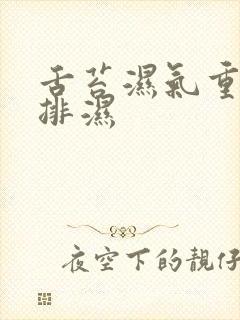 舌苔濕氣重
排濕
夜空下的靚仔